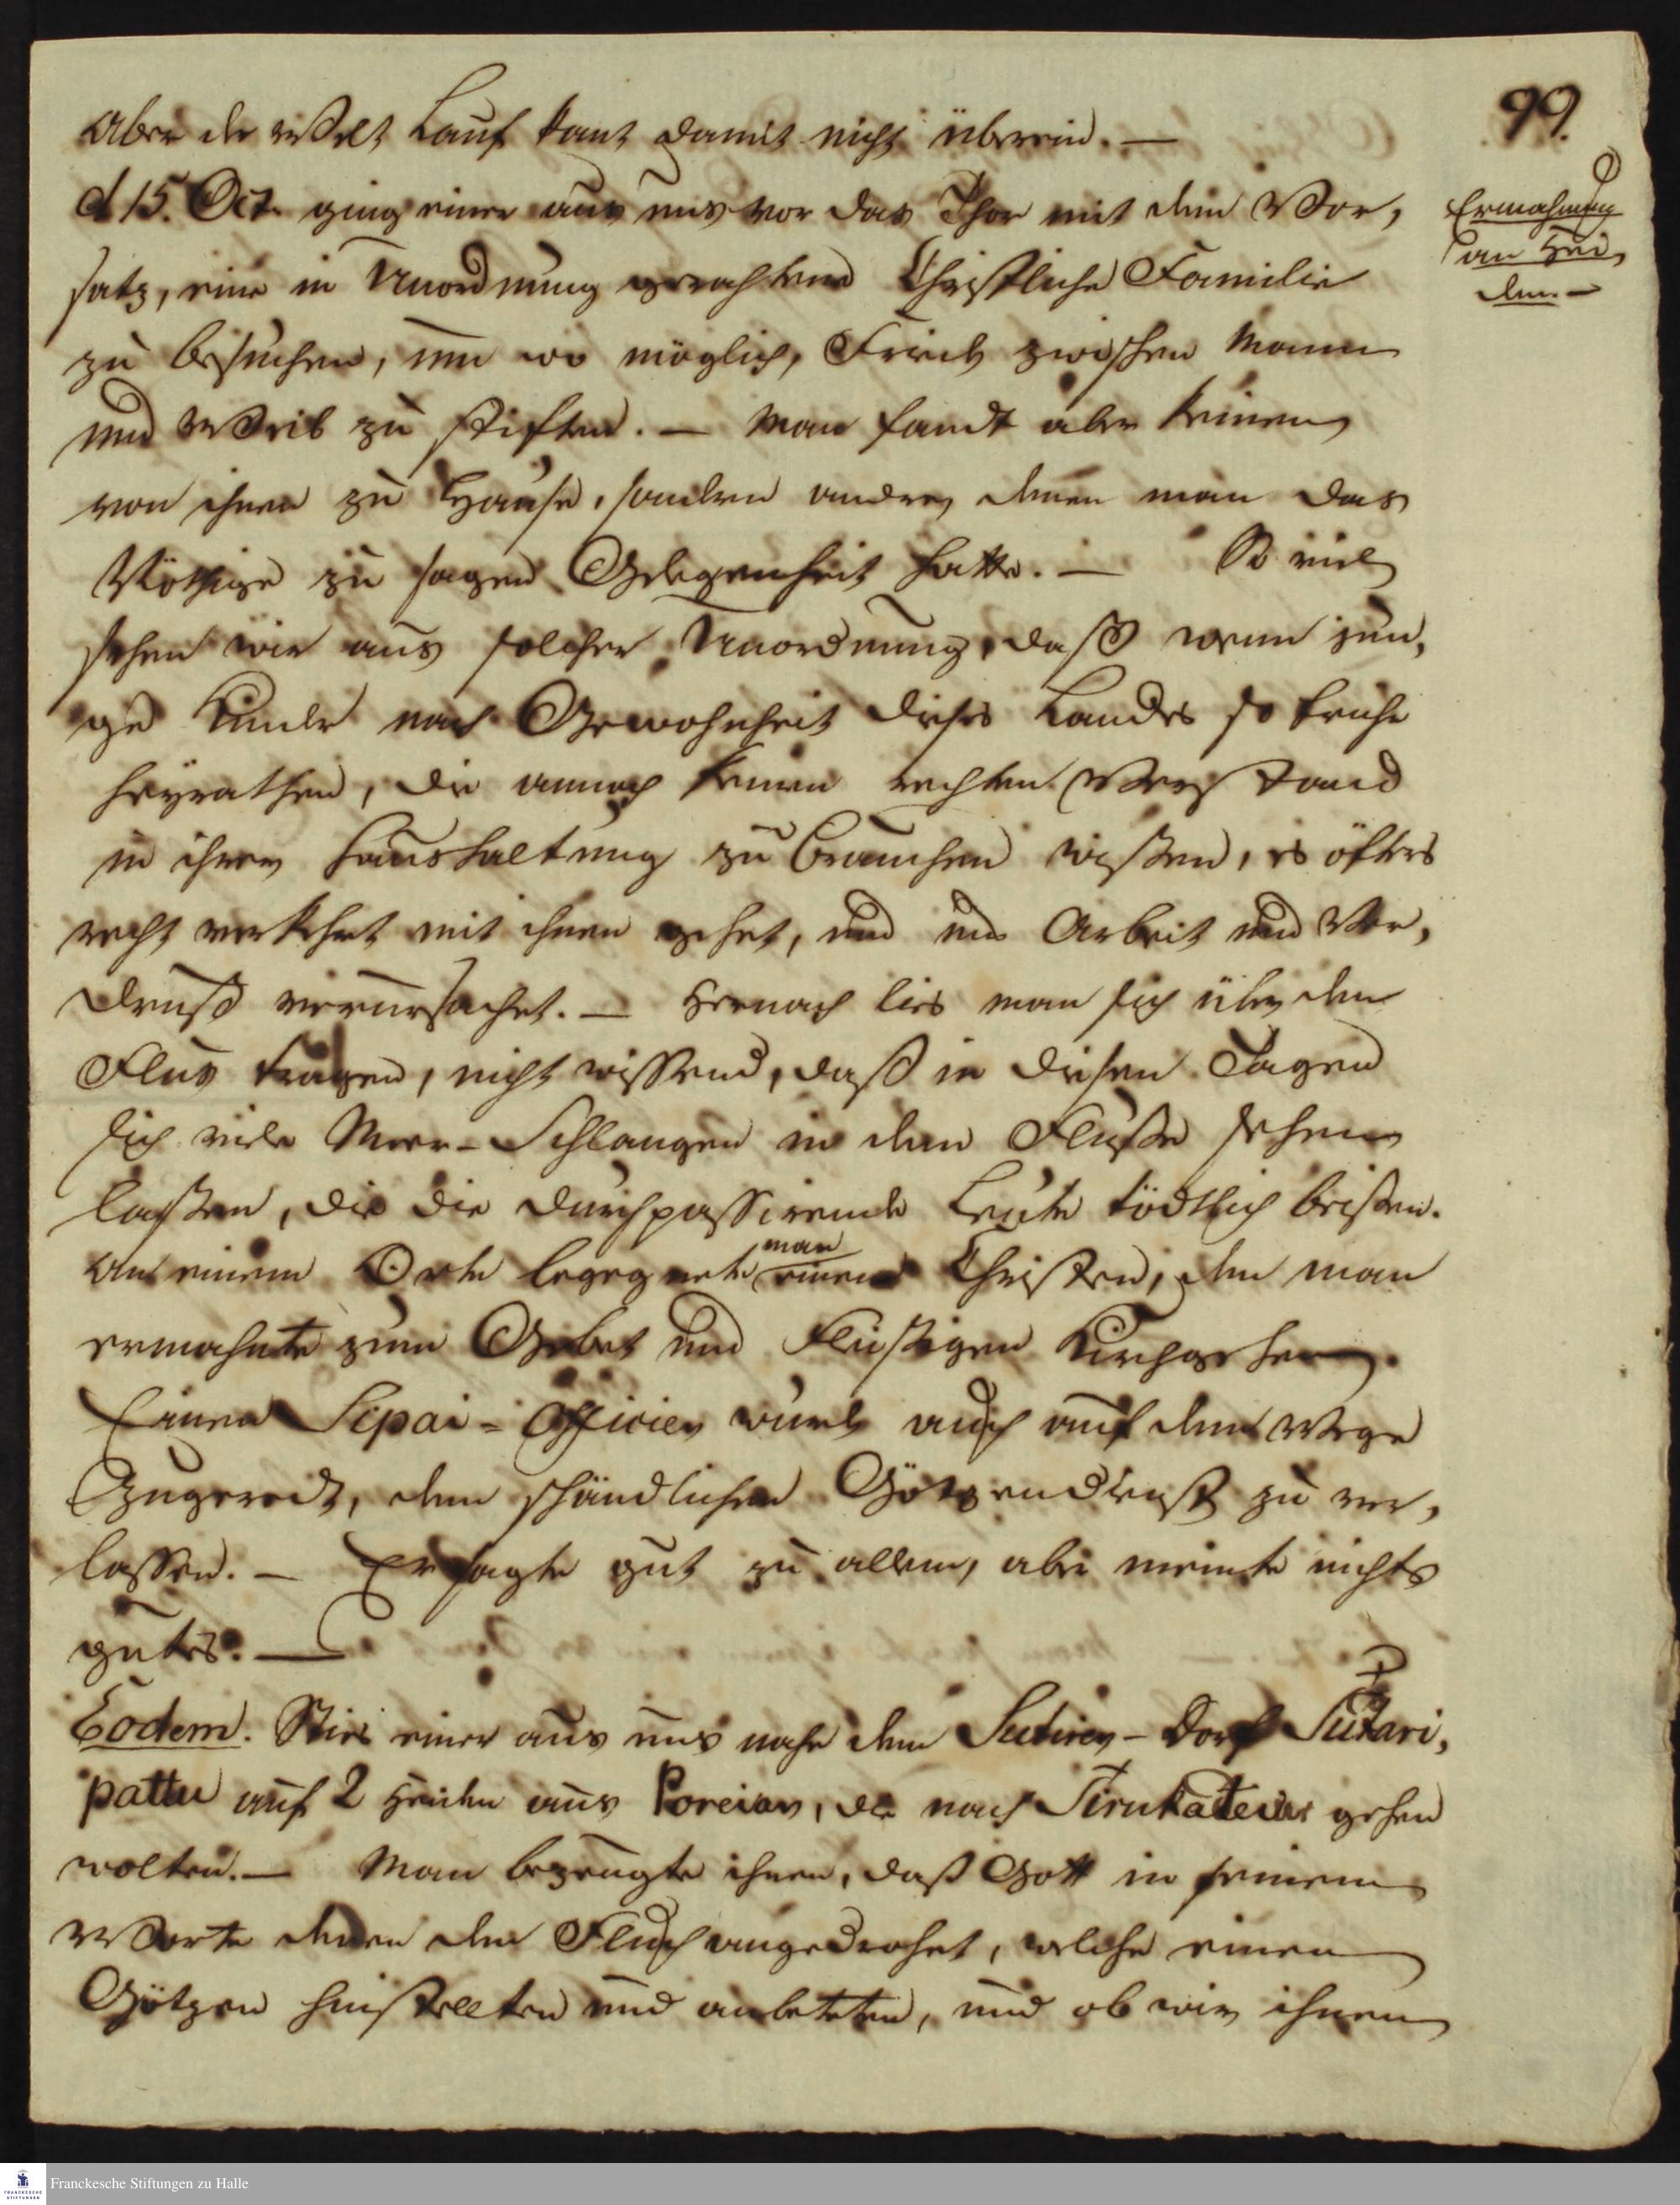 99.
Aber der Welt Lauf kamt damit nicht überein. —
d 15. Oct. ging einer aus uns vor das Thor mit dem Vor,
satz, eine in Unordnung gerathene Christliche Familie
zu besuchen, um wo möglich, Friede zwischen Mann
und Weib zu stiften. — Man fandt aber keinen
von ihnen zu Hause, sondern andre, denen man das
Nöthige zu sagen Gelegenheit hatte. — So viel
sehen wir aus solcher Unordnung, daß wenn jun,
ge Kinder nach Gewohnheit dieses Landes so frühe
heyrathen, die annoch keinen rechten Verstand
in ihrer Haushaltung zu brauchen wißen, es öfters
recht verkehrt mit ihnen gehet, und uns Arbeit und Ver,
druß verursachet. — Hernach lies man sich über den
Flus tragen, nicht wissend, daß in diesen Tagen
sich viele Meer-Schlangen in dem Fluße sehen
laßen, die die durchpassirende Leute tödtlich beißen.
An einem Orte begegnete man einen Christen, den man
ermahnte zum Gebet und Fleißigen Kirchgehen.
Einen Sipai-Officier wurde auch auf dem Wege
Zugeredt, den schändlichen Götzendienst zu ver,
lassen. — Er sagte gut zu allem, aber meinte nichts
gutes. —
Eodem. Sties einer aus uns nahe dem Sutirer-Dorf Sutari,
pattu auf 2 Heiden aus Poreiar, die nach Tirukadeiur gehen
wolten. — Man bezeugte ihnen, daß Gott in seinem
Worte denen den Fluch angedrohet, welche einen
Götzen hinstellten und anbeteten, und ob wir ihnen
Ermahnung
an Hei,
den. —
Franckesche Stiftungen zu Halle